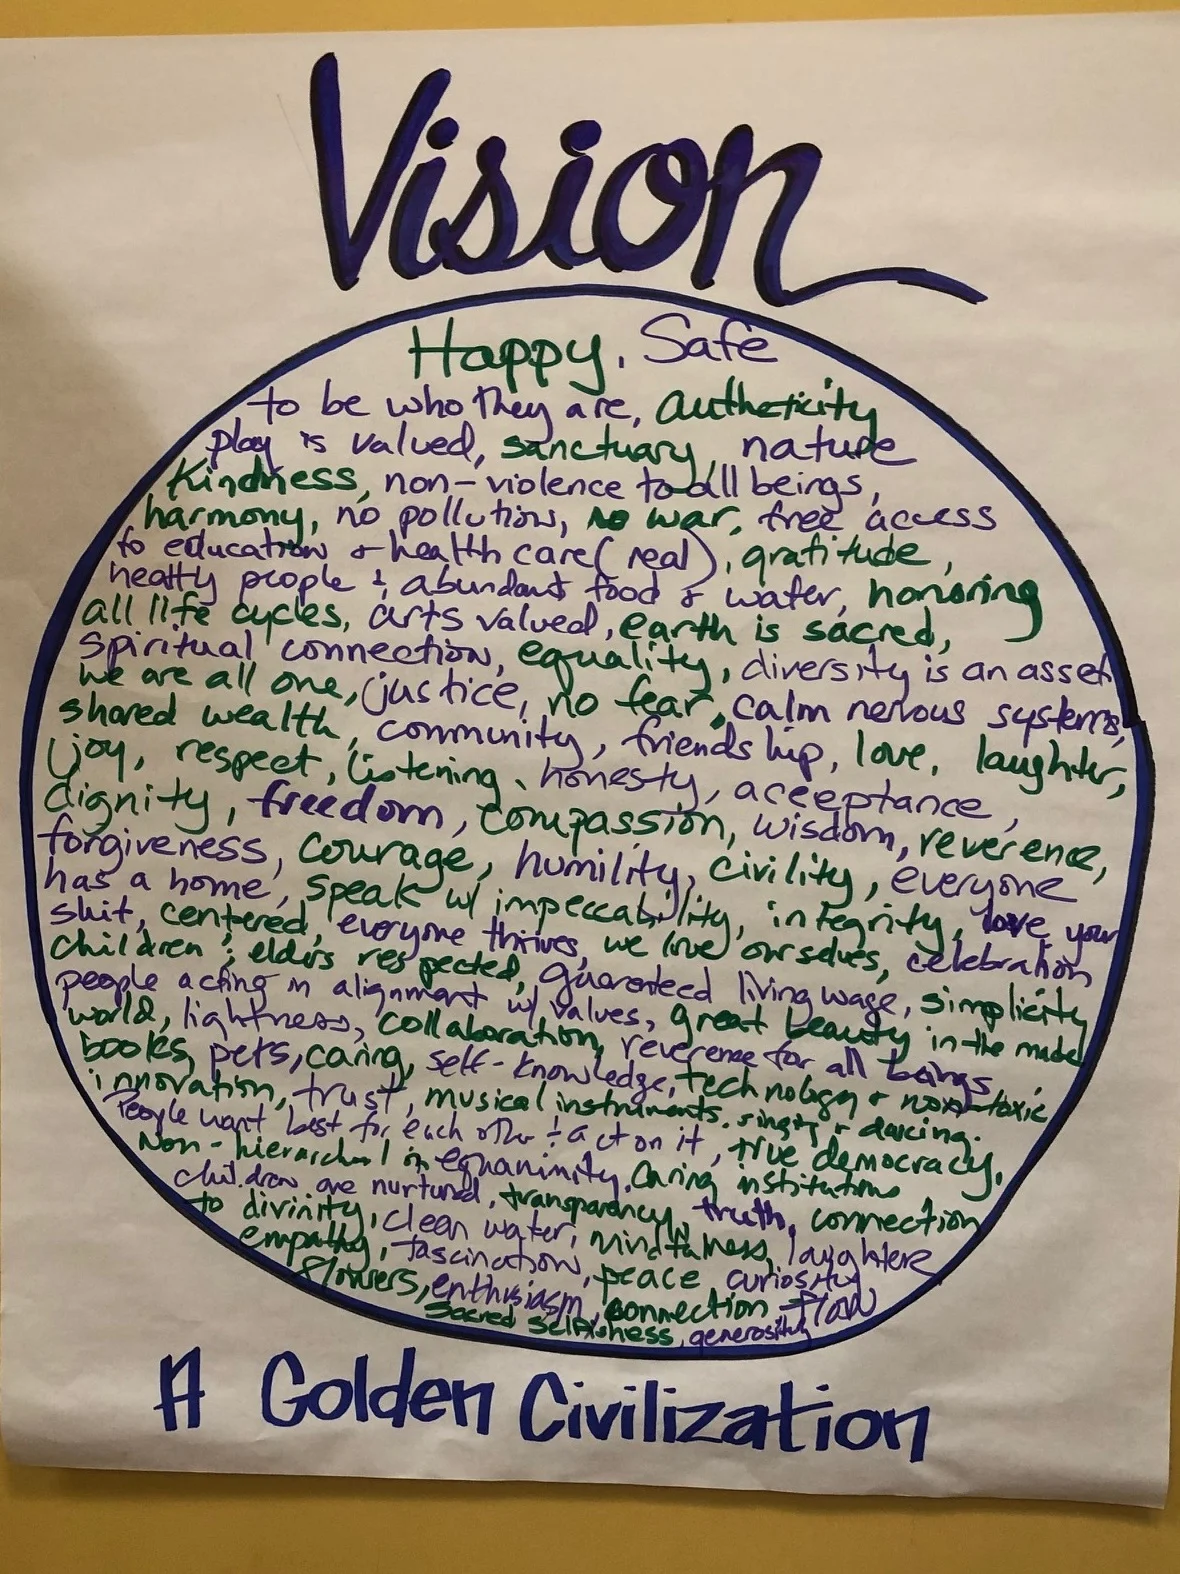 Vision
Happy, Safe
to be who they are, autheticity
play is valued, sanctuary, nature
Kindness, non-violence to all beings,
harmony, no pollution, no war, free access
to education & health care (real), gratitude,
people & abundant food & water, honoring
all life cycles, arts valued, earth is sacred,
spiritual connection, equality, diversity is an asset
we are all one, justice, no fear, calm nervous systems,
shared wealth, community, friendship, love, laughter,
joy, respect, listening, honesty, acceptance,
dignity, freedom, compassion, wisdom, reverence,
forgiveness, courage, humility, civility, everyone
has a home, speak w/ impeccability, integrity, love your
shit, centered, everyone thrives, we love ourselves, celebration
children & elders respected, guaranteed living wage, simplicity
people acting in alignment w/ values, great beauty in the made
world, lightness, collaboration, reverence for all beings,
books, pets, caring, self-knowledge, technology & non-toxic
innovation, trust, musical instruments, singing & dancing.
People want best for each other & act on it, true democracy,
Non-hierarchal in equanimity, caring institutions
children are nurtured, transparency, truth, connection
to divinity, clean water, mindfulness, laughter
empathy, fascination, peace curiosity
flowers, enthusiasm, connection, flow
Sacred selfishness, generosity
A Golden Civilization